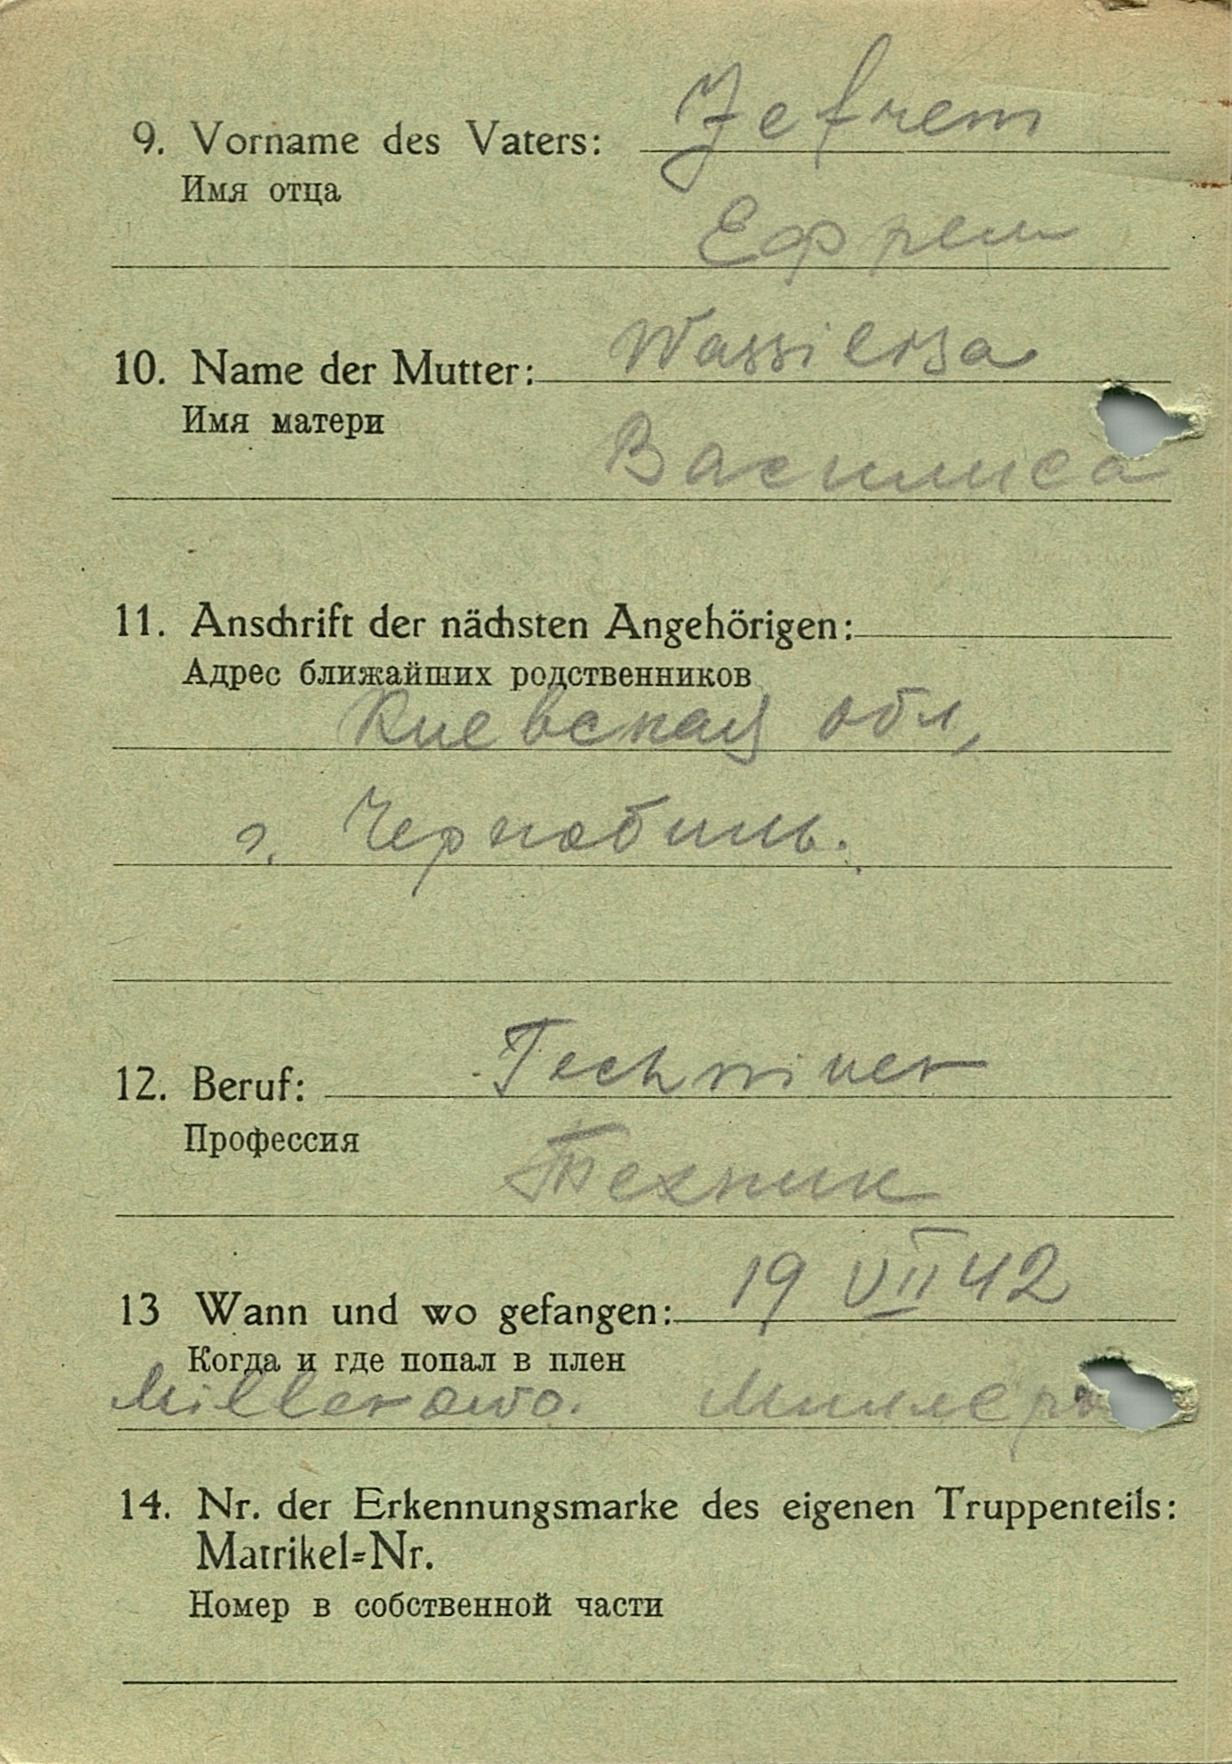 9. Vorname des Vaters: Jefrem
Имя отца
Ефрем
10. Name der Mutter: Wassilisa
Имя матери
Василиса
11. Anschrift der nächsten Angehörigen:
Адрес ближайших родственников
Киевская обл,
г. Чернобиль.
12. Beruf: Techniner
Профессия
Техник
13 Wann und wo gefangen: 19 VII 42
Когда и где попал в плен
Millerowo. Миллеро
14. Nr. der Erkennungsmarke des eigenen Truppenteils:
Matrikel=Nr.
Номер в собственной части